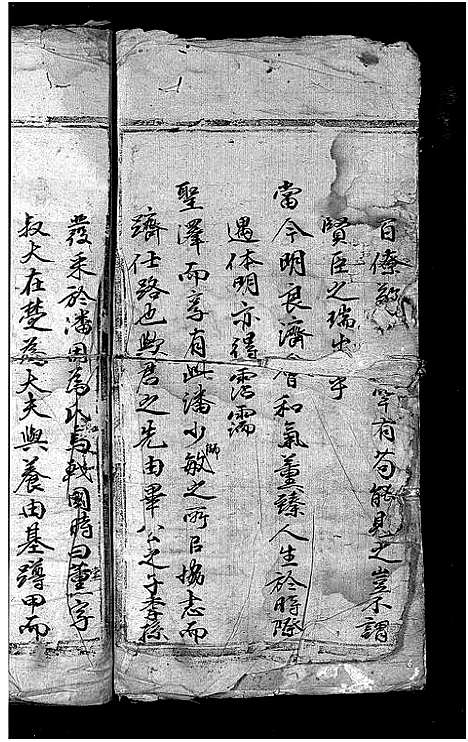 百僚罕有苟能見之豈不謂
賢臣之瑞出乎
當今明良濟會和氣薰臻人生於時際
遇休明亦得霑濡
聖澤而享有此潘少敏之所以協志而
躋仕路也歟君之先由畢公之子季孫
發采於潘因為氏焉戰國時曰尫字
叔大在楚為大夫與養由基蹲甲而